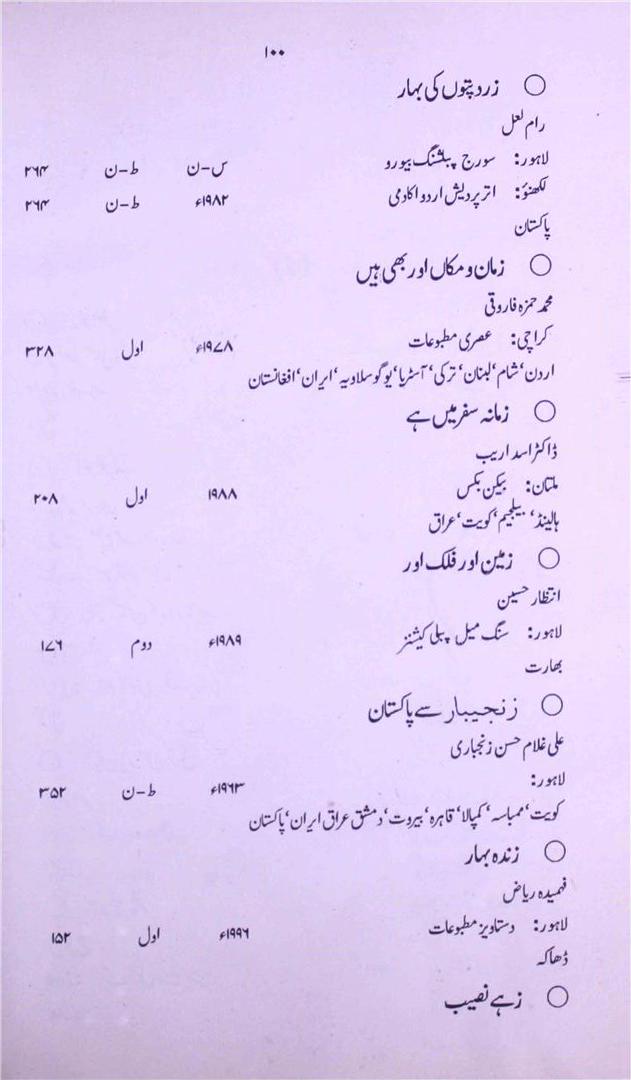 ۱۰۰
○ زرد پتوں کی بہار
رام لعل
لاہور: سورج پبلشنگ بیورو س-ن ط-ن ۲۶۴
لکھنؤ: اترپردیش اردو اکادمی ۱۹۸۲ء ط-ن ۲۶۴
پاکستان
○ زمان و مکاں اور بھی ہیں
محمد حمزہ فاروقی
کراچی: عصری مطبوعات ۱۹۷۸ء اول ۳۲۸
اردن، شام، لبنان، ترکی، آسٹریا، یوگوسلاویہ، ایران، افغانستان
○ زمانہ سفر میں ہے
ڈاکٹر اسد اریب
ملتان: بیکن بکس ۱۹۸۸ اول ۲۰۸
ہالینڈ، بیلجیم، کویت، عراق
○ زمین اور فلک اور
انتظار حسین
لاہور: سنگ میل پبلی کیشنز ۱۹۸۹ء دوم ۱۷۶
بھارت
○ زنجیبار سے پاکستان
علی غلام حسن زنجباری
لاہور: ۱۹۶۳ء ط-ن ۳۵۲
کویت، ممباسہ، کمپالا، قاہرہ، بیروت، دمشق عراق ایران، پاکستان
○ زندہ بہار
فہمیدہ ریاض
لاہور: دستاویز مطبوعات ۱۹۹۶ء اول ۱۵۲
ڈھاکہ
○ زہے نصیب